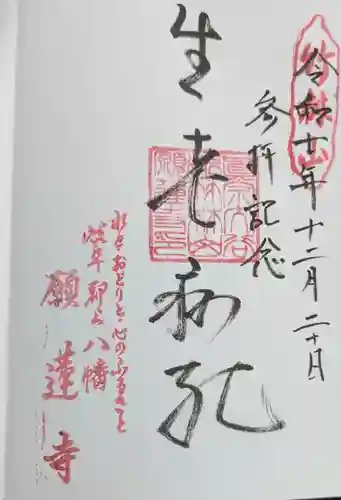 令和七年十二月二十日
参拝記念
生老病死
水とおどりと心のふるさと
岐阜郡上八幡
願蓮寺